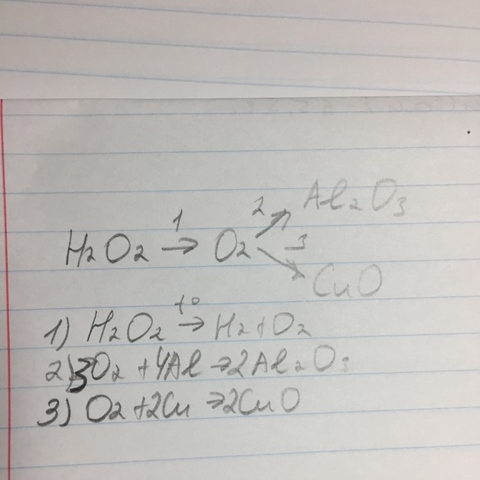 H₂O₂ →¹ O₂ →² Al₂O₃
→³ CuO
1) H₂O₂ →ᵗ° H₂+O₂
2) 3O₂ + 4Al → 2Al₂O₃
3) O₂+2Cu → 2CuO